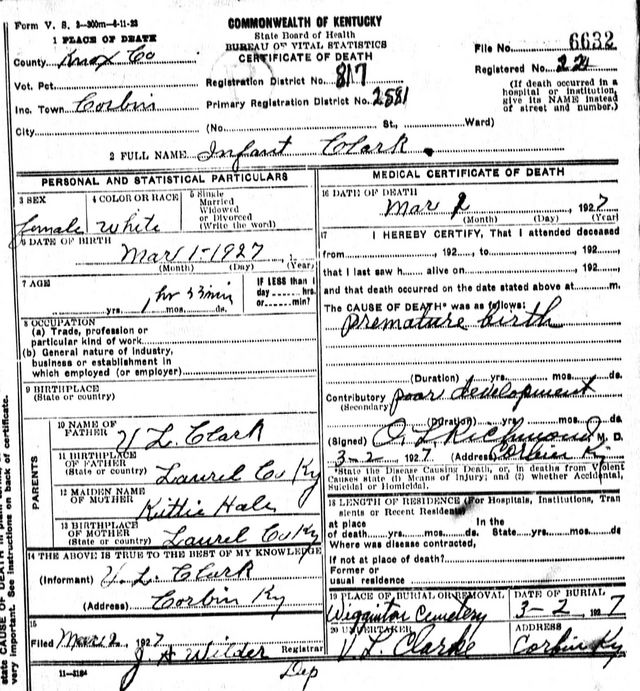 Form V. S. 3-300m-4-11-23
COMMONWEALTH OF KENTUCKY
State Board of Health
BUREAU OF VITAL STATISTICS
CERTIFICATE OF DEATH
File No. 6632
Registered No. 221
(If death occurred in a hospital or institution, give its NAME instead of street and number.)
1 PLACE OF DEATH
County Knox Co
Vot. Pct.
Registration District No. 817
Inc. Town Corbin
Primary Registration District No. 2581
City (No. St., Ward)
2 FULL NAME Infant Clark
PERSONAL AND STATISTICAL PARTICULARS
3 SEX female
4 COLOR OR RACE White
5 Single Married Widowed or Divorced (Write the word)
6 DATE OF BIRTH
Mar 1-1927
(Month) (Day) (Year)
7 AGE
1 hr 33 min
yrs. mos. ds.
IF LESS than 1 day hrs. or min?
8 OCCUPATION
(a) Trade, profession or particular kind of work
(b) General nature of industry, business or establishment in which employed (or employer)
9 BIRTHPLACE
(State or country)
PARENTS
10 NAME OF FATHER V L. Clark
11 BIRTHPLACE OF FATHER (State or country) Laurel Co Ky
12 MAIDEN NAME OF MOTHER Kittie Hale
13 BIRTHPLACE OF MOTHER (State or country) Laurel Co Ky
14 THE ABOVE IS TRUE TO THE BEST OF MY KNOWLEDGE
(Informant) V. L. Clark
(Address) Corbin Ky
15
Filed Mar 2, 1927
J. A Wilder Registrar
Dep
11-3184
MEDICAL CERTIFICATE OF DEATH
16 DATE OF DEATH
Mar 2, 1927
(Month) (Day) (Year)
17 I HEREBY CERTIFY, That I attended deceased
from , 192 , to , 192
that I last saw h alive on , 192
and that death occurred on the date stated above at m.
The CAUSE OF DEATH* was as follows:
Premature birth
(Duration) yrs. mos. ds.
Contributory (Secondary) poor development
(Duration) yrs. mos. ds.
(Signed) O. L Richmond M. D.
3-2, 1927 (Address) Corbin Ky
*State the Disease Causing Death, or, in deaths from Violent Causes state (1) Means of Injury; and (2) whether Accidental, Suicidal or Homicidal.
18 LENGTH OF RESIDENCE (For Hospitals, Institutions, Transients or Recent Residents)
at place of death yrs. mos. ds. In the State yrs. mos. ds.
Where was disease contracted,
if not at place of death?
Former or usual residence
19 PLACE OF BURIAL OR REMOVAL
Wigginton Cemetery
DATE OF BURIAL
3-2, 1927
20 UNDERTAKER
V. L. Clarke
ADDRESS
Corbin Ky
state CAUSE OF DEATH in plain
very important. See instructions on back of certificate.